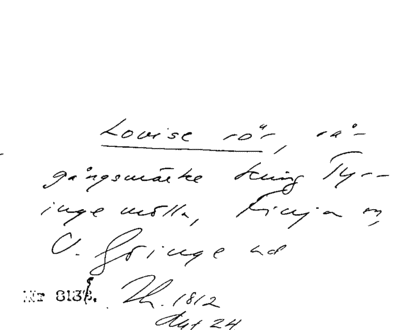 Louise rör, rå-
gångsmärke kring Tyr-
inge mölla, Finja sn,
V. Göinge hd
Nr 8138. Th. 1812
Akt 24